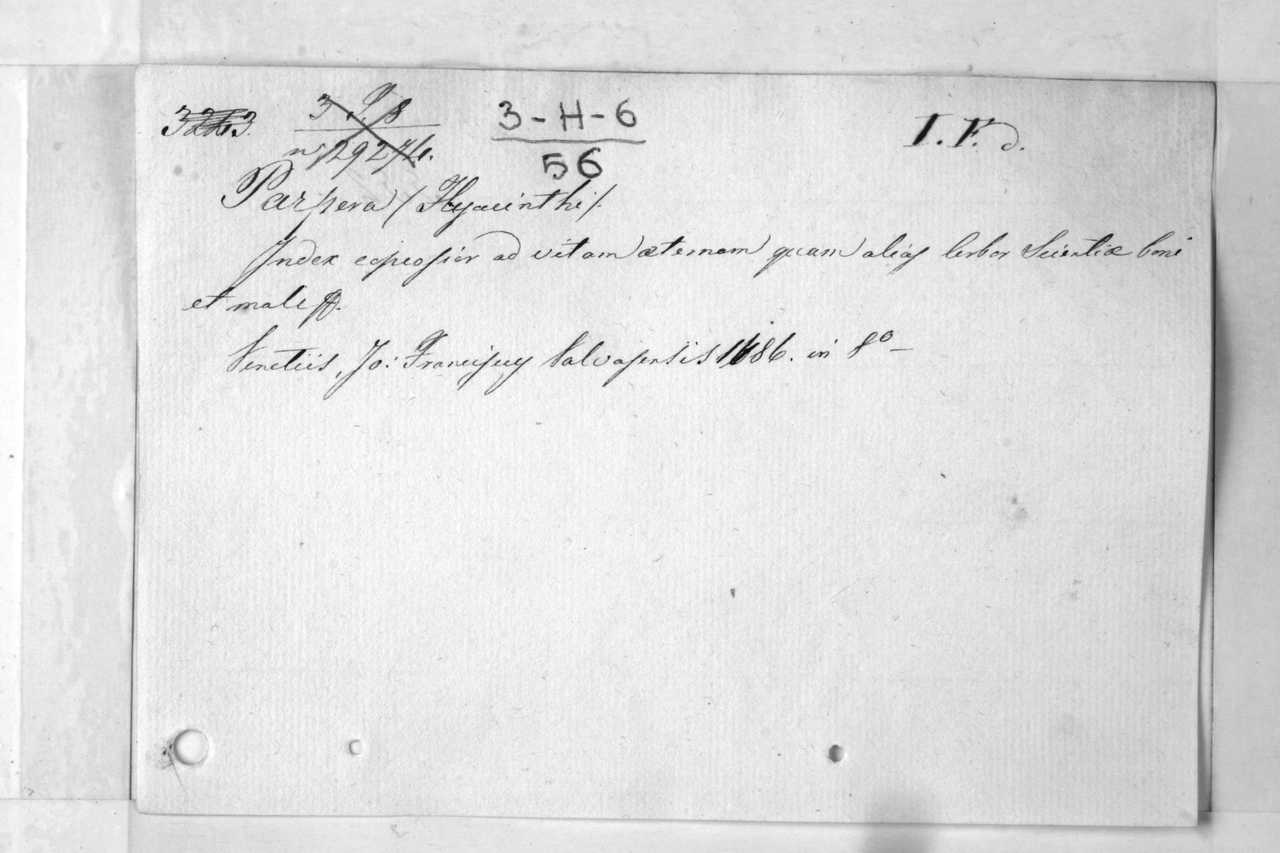 3-H-6
56
I. F. d.
Parpera / Hyacinthi /
Index copiosior ad vitam æternam quam alias arbor Scientiæ boni
et mali
Venetiis, Jo: Franciscus Valvasensis 1686. in 8º —